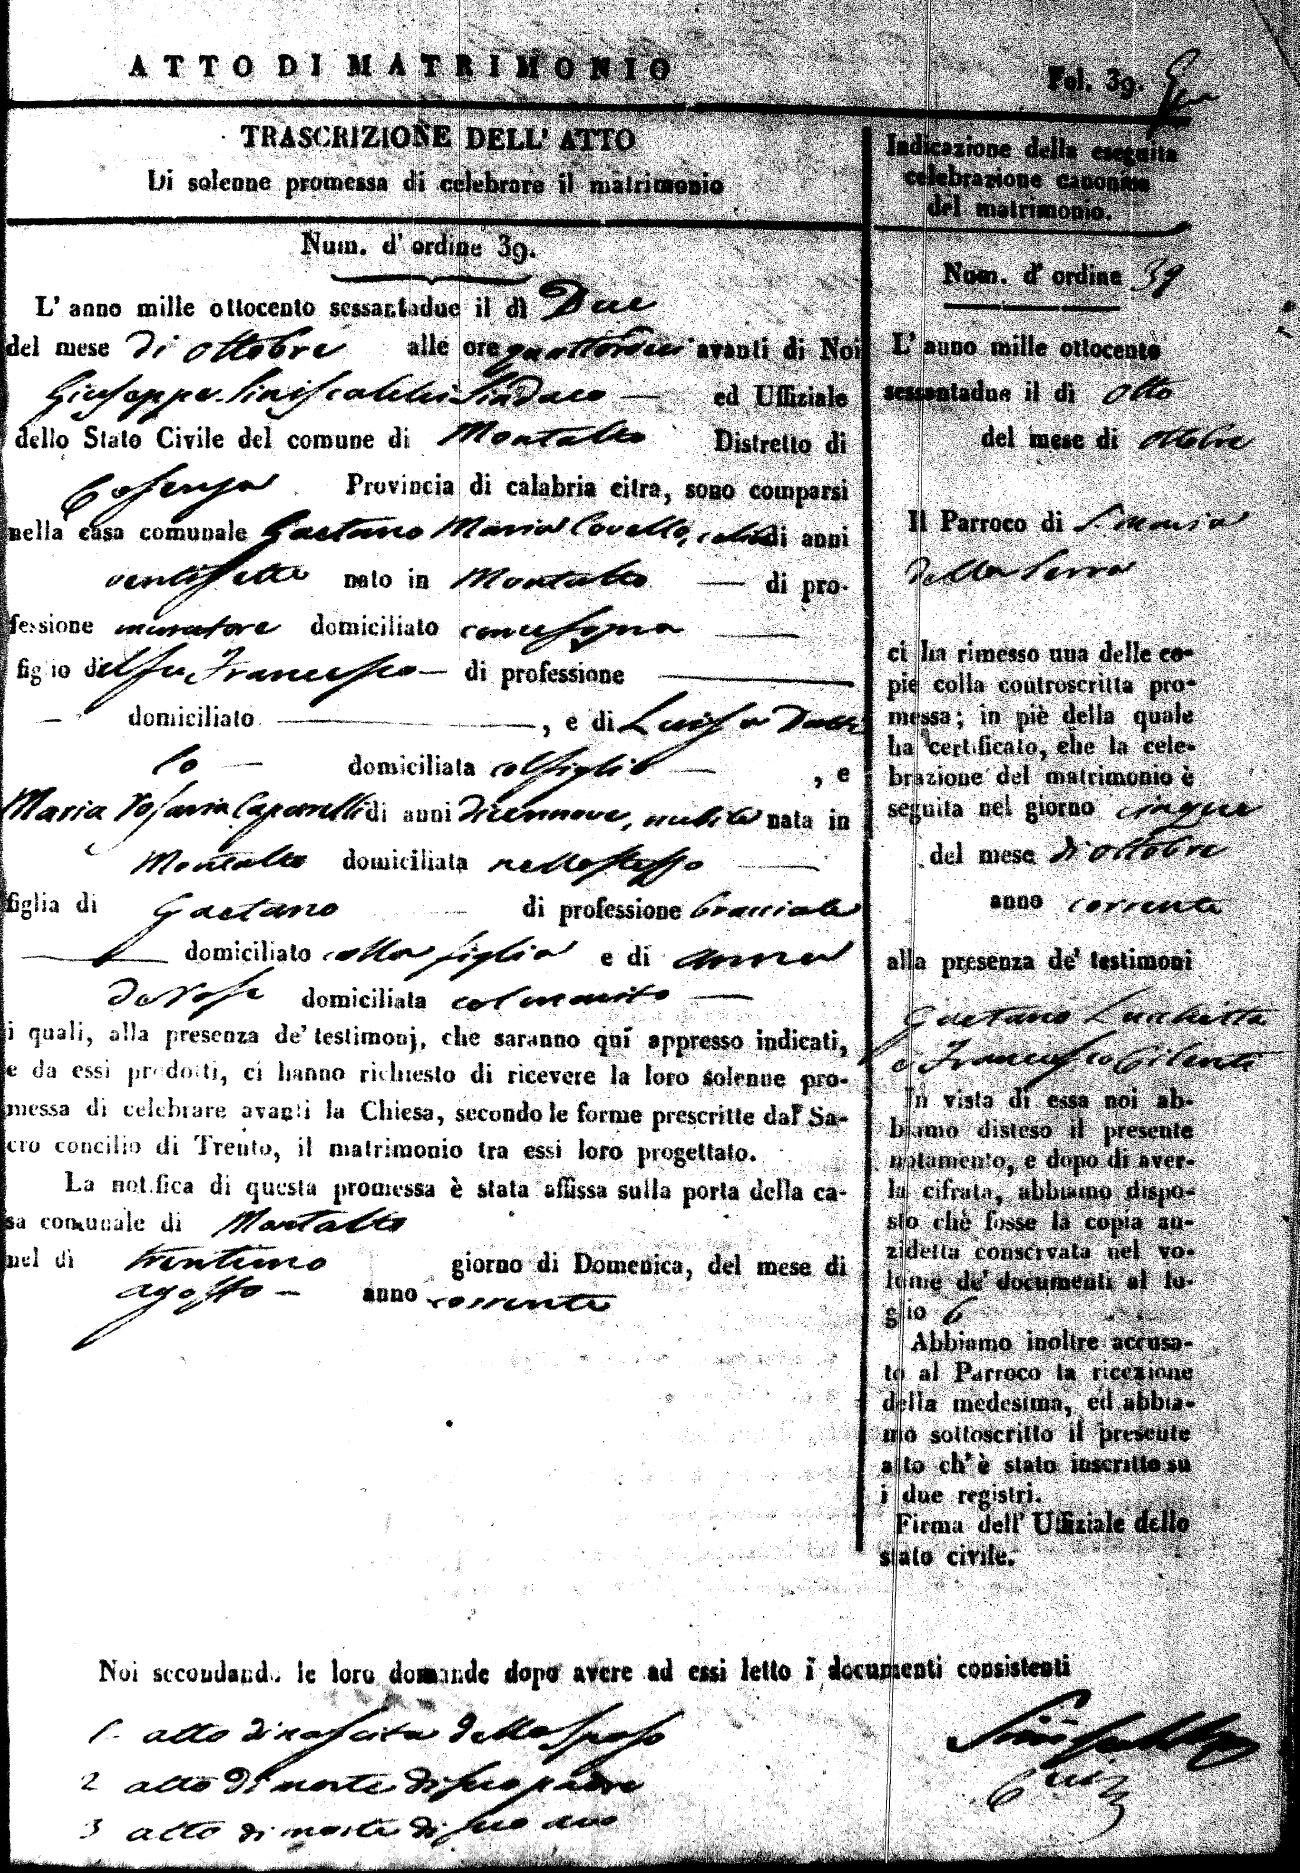 ATTO DI MATRIMONIO
Fol. 39.
TRASCRIZIONE DELL' ATTO
Di solenne promessa di celebrare il matrimonio
Num. d' ordine 39.
L' anno mille ottocento sessantadue il dì Due
del mese di ottobre alle ore quattordici avanti di Noi
Giuseppe Siniscalchi Sindaco — ed Uffiziale
dello Stato Civile del comune di Montalto Distretto di
Cosenza Provincia di calabria citra, sono comparsi
nella casa comunale Gaetano Maria Covello, di anni
ventisette nato in Montalto — di pro-
fessione muratore domiciliato —
figlio del fu Francesco — di professione —
— domiciliato —, e di Luisa
lo — domiciliata col figlio —, e
Maria Rosaria Caparelli di anni diecinnove, nubile nata in
Montalto domiciliata nello stesso —
figlia di Gaetano di professione bracciale
— domiciliato colla figlia e di Anna
de Rose domiciliata col marito —
i quali, alla presenza de' testimonj, che saranno quì appresso indicati,
e da essi prodotti, ci hanno richiesto di ricevere la loro solenne pro-
messa di celebrare avanti la Chiesa, secondo le forme prescritte dal Sa-
cro concilio di Trento, il matrimonio tra essi loro progettato.
La notifica di questa promessa è stata affissa sulla porta della ca-
sa comunale di Montalto
nel dì trentuno giorno di Domenica, del mese di
agosto — anno corrente
Noi secondando le loro domande dopo avere ad essi letto i documenti consistenti
1. atto di nascita dello sposo
2 atto di morte di suo padre
3 atto di morte di suo avo
Indicazione della eseguita
celebrazione canonica
del matrimonio.
Num. d' ordine 39
L' anno mille ottocento
sessantadue il dì otto
del mese di ottobre
Il Parroco di S. Maria
della Serra
ci ha rimesso una delle co-
pie colla controscritta pro-
messa; in piè della quale
ha certificato, che la cele-
brazione del matrimonio è
seguita nel giorno cinque
del mese di ottobre
anno corrente
alla presenza de' testimoni
Gaetano Lucchetta
e Francesco Cilento
In vista di essa noi ab-
biamo disteso il presente
notamento, e dopo di aver-
la cifrata, abbiamo dispo-
sto chè fosse la copia an-
zidetta conservata nel vo-
lume de' documenti al fo-
glio 6
Abbiamo inoltre accusa-
to al Parroco la ricezione
della medesima, ed abbia-
mo sottoscritto il presente
atto ch' è stato inscritto su
i due registri.
Firma dell' Uffiziale dello
stato civile.
Siniscalchi